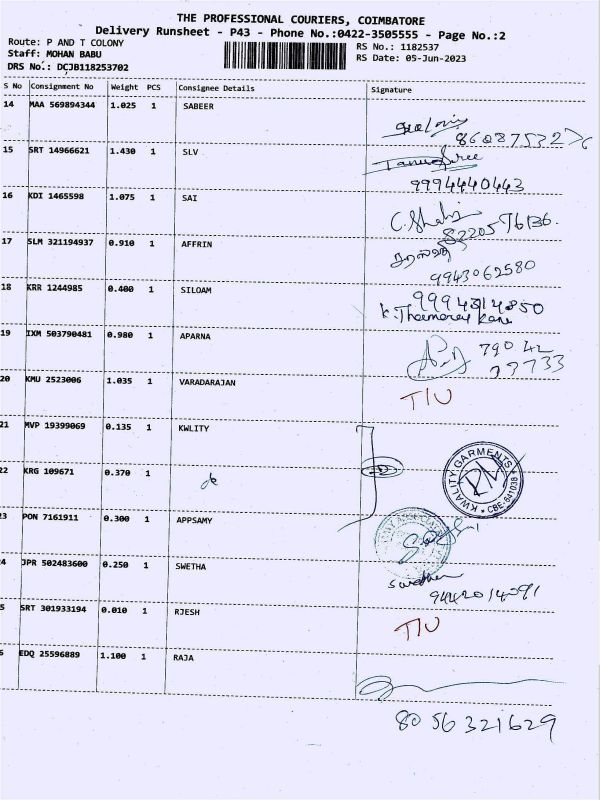 THE PROFESSIONAL COURIERS, COIMBATORE
Delivery Runsheet - P43 - Phone No.:0422-3505555 - Page No.:2
Route: P AND T COLONY
Staff: MOHAN BABU
DRS No.: DCJB118253702
RS No.: 1182537
RS Date: 05-Jun-2023
S No Consignment No Weight PCS Consignee Details Signature
14 MAA 569894344 1.025 1 SABEER
15 SRT 14966621 1.430 1 SLV
9994440443
16 KDI 1465598 1.075 1 SAI
8220576136.
17 SLM 321194937 0.910 1 AFFRIN
9943062580
18 KRR 1244985 0.400 1 SILOAM
19 IXM 503790481 0.980 1 APARNA
79042
20 KMU 2523006 1.035 1 VARADARAJAN
TIU
21 MVP 19399069 0.135 1 KWLITY
KWALITY GARMENTS
CBE-641038
22 KRG 109671 0.370 1
do
3 PON 7161911 0.300 1 APPSAMY
4 JPR 502483600 0.250 1 SWETHA
Swetha
5 SRT 301933194 0.010 1 RJESH
TIU
6 EDQ 25596889 1.100 1 RAJA
8056321629